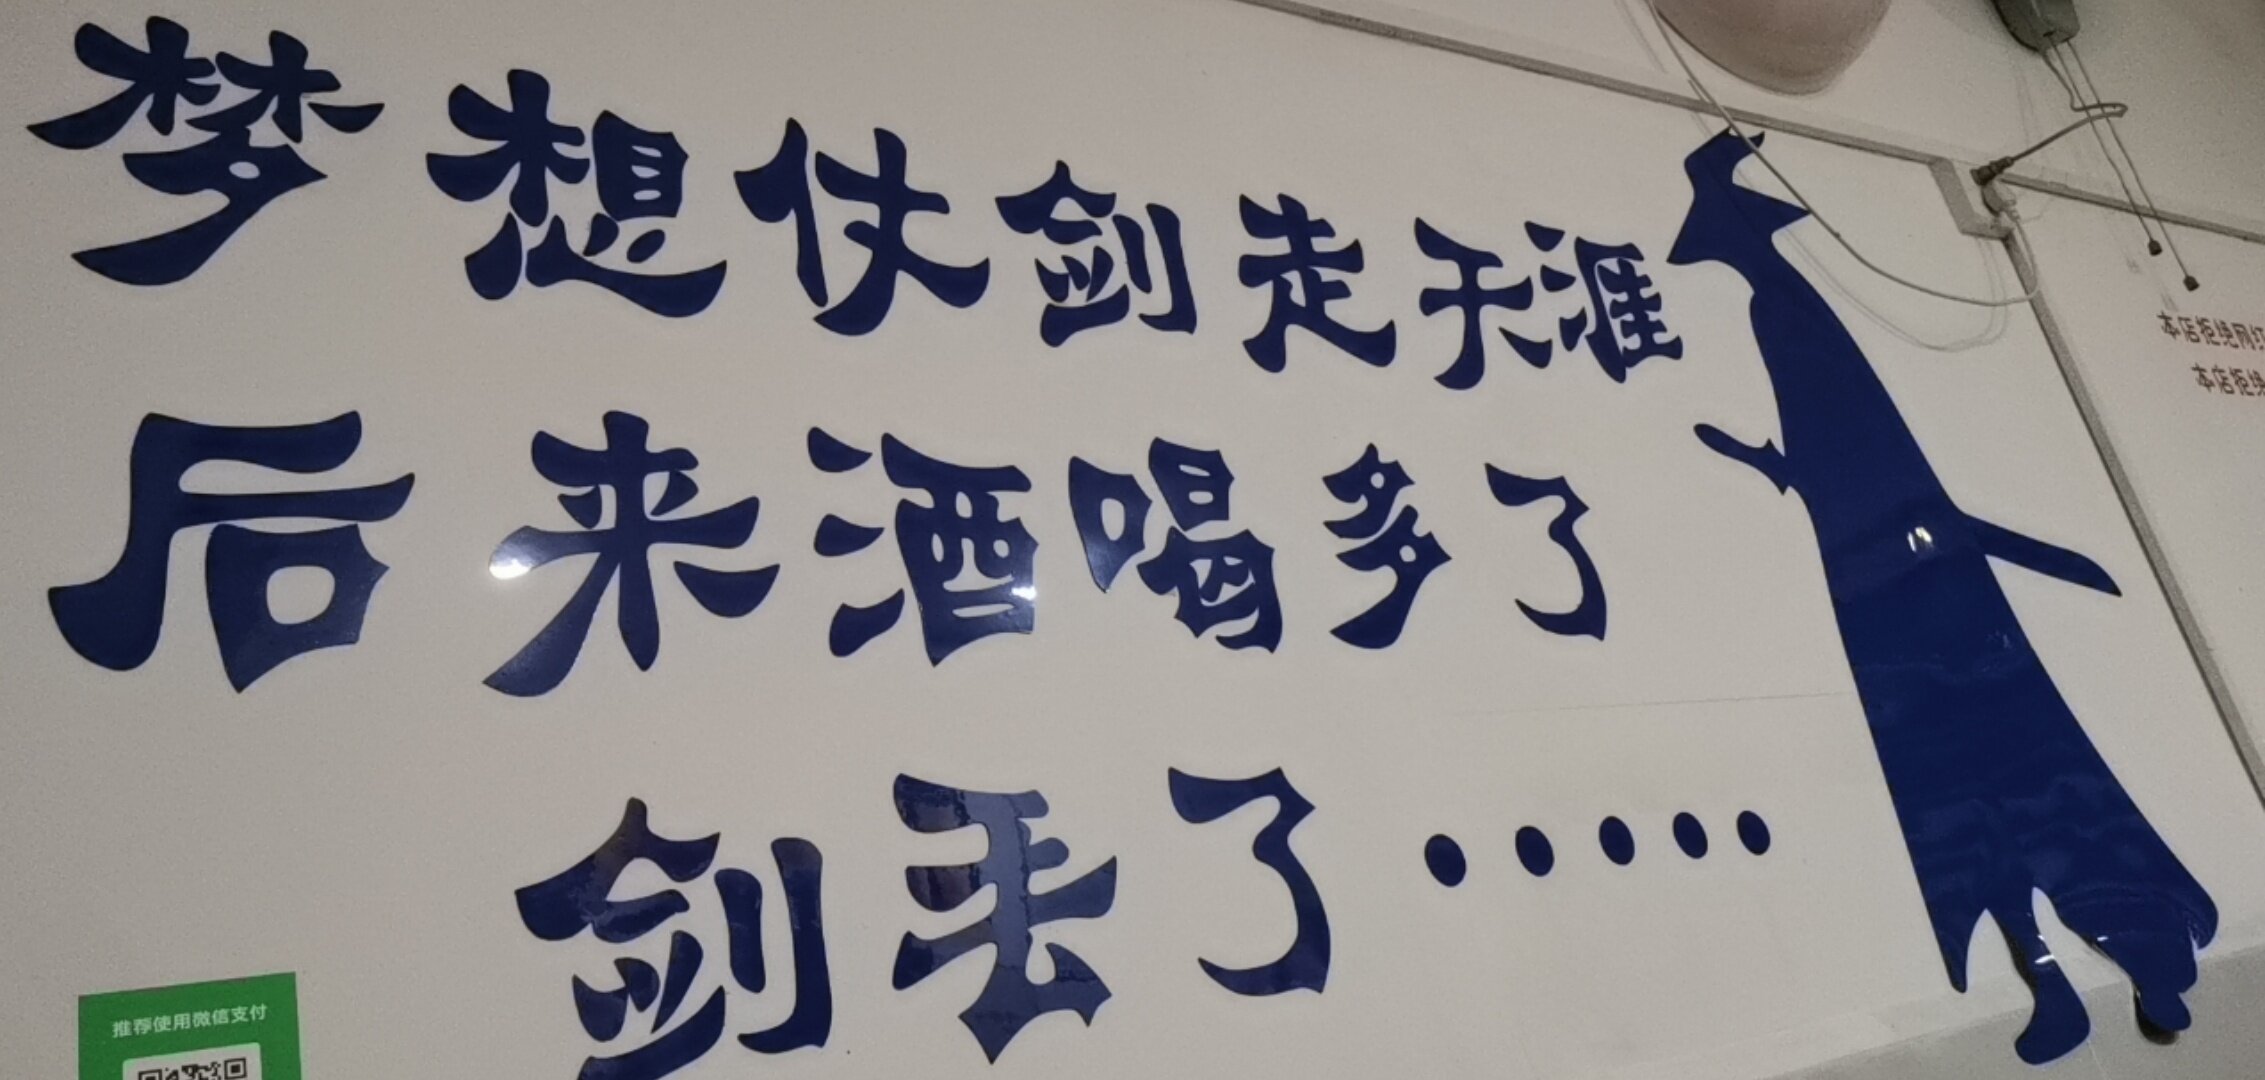 梦想仗剑走天涯
后来酒喝多了
剑丢了·····
本店拒绝网络
本店拒绝
推荐使用微信支付